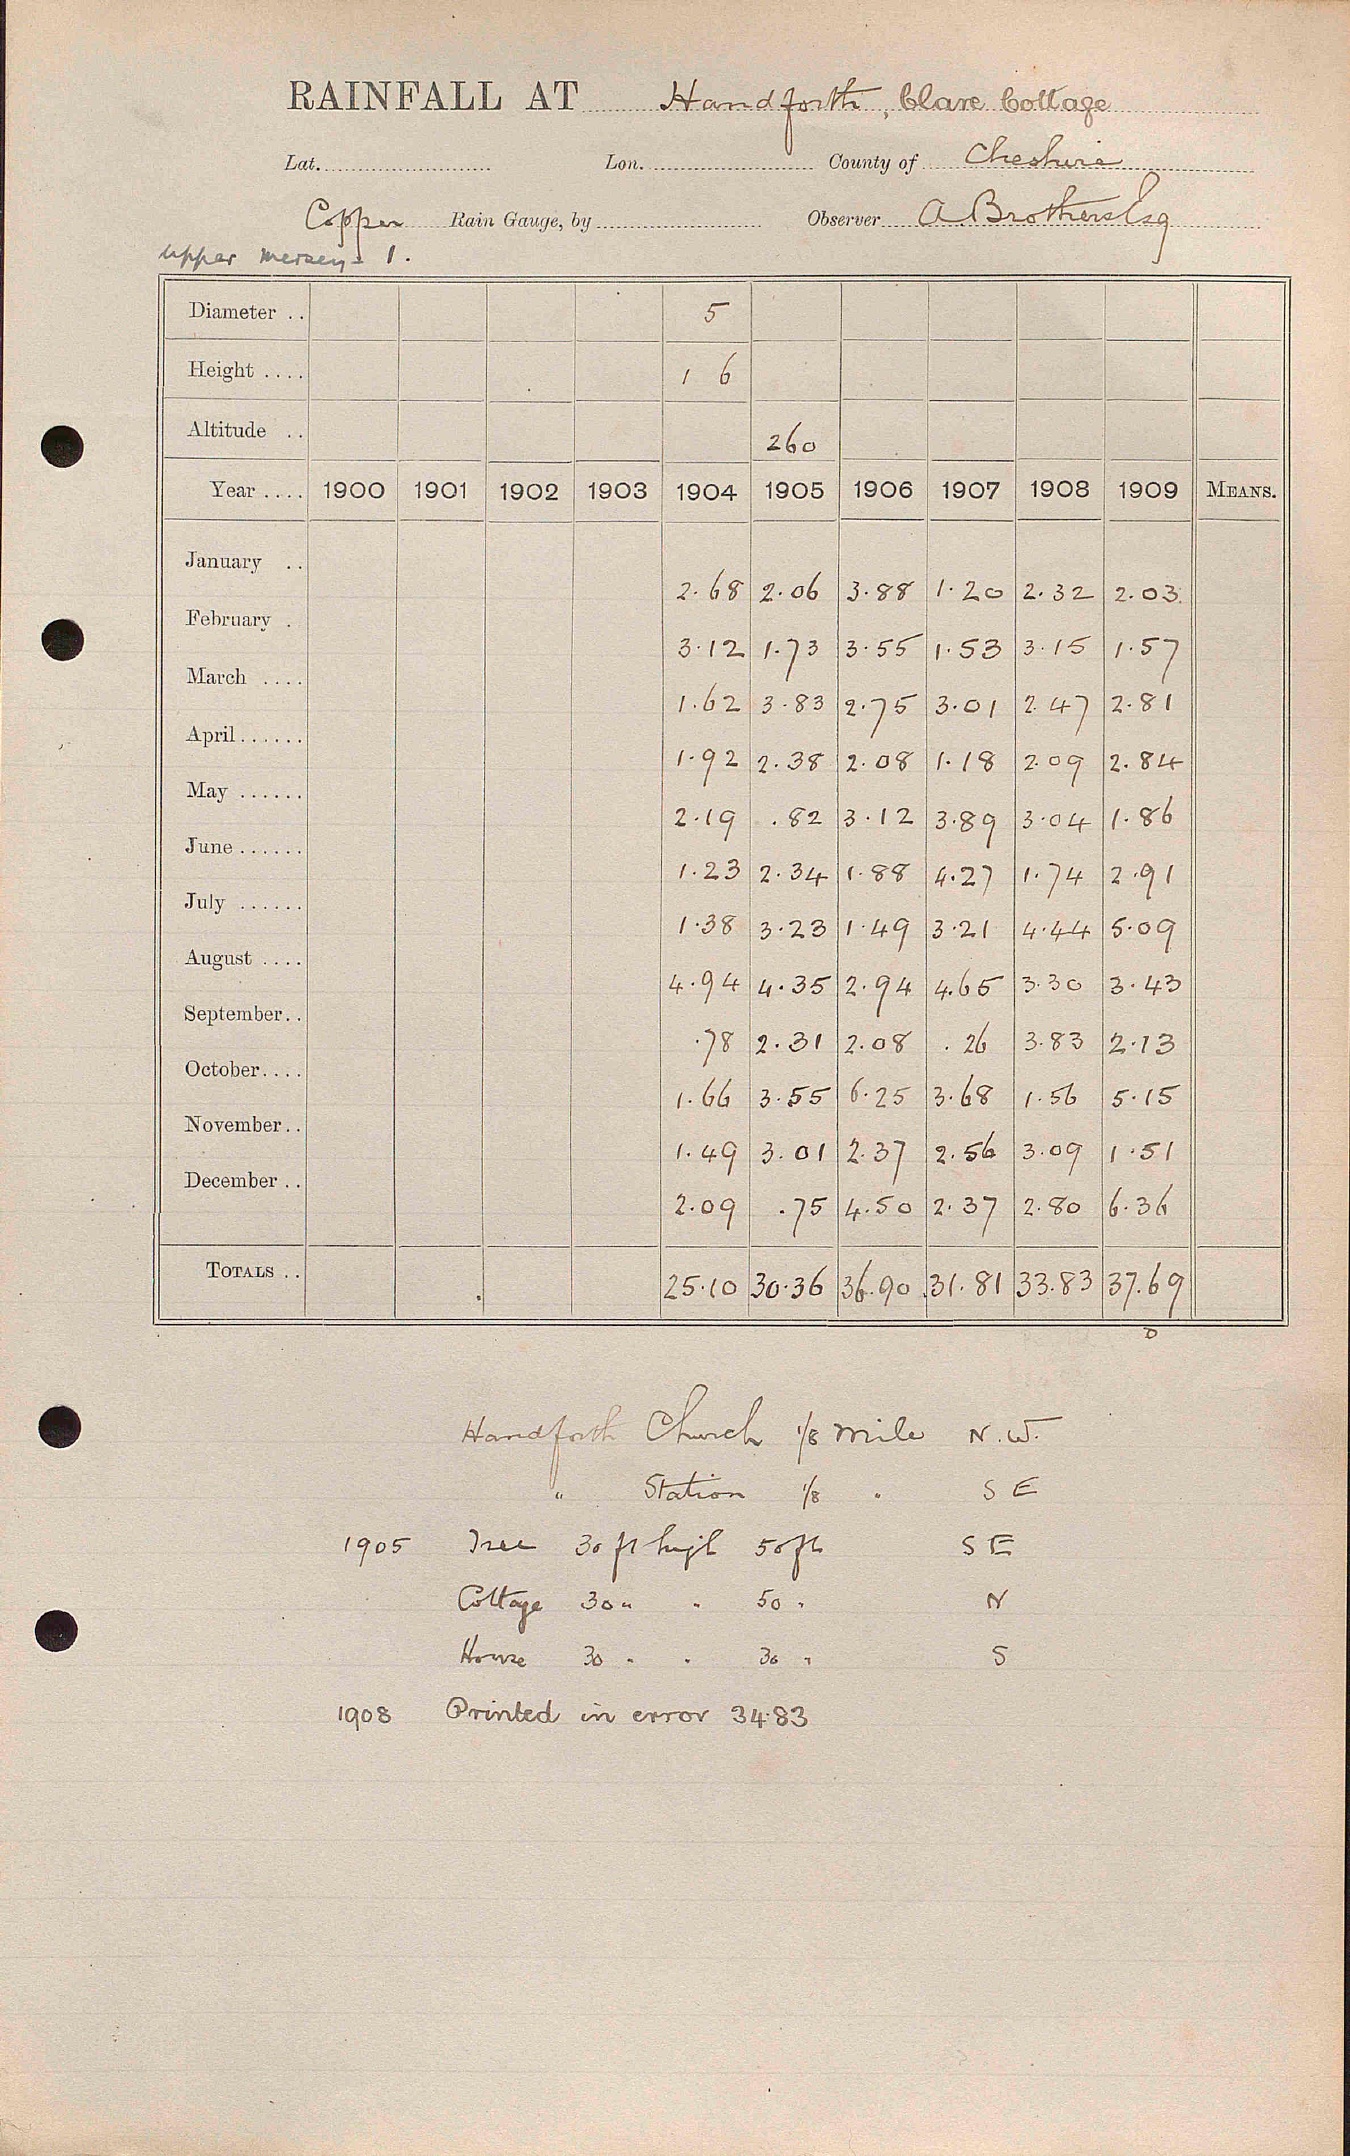 RAINFALL AT Handforth, Clare Cottage
Lat. Lon. County of Cheshire
Copper Rain Gauge, by Observer A. Brothers Esq
Upper Mersey - 1.
Diameter .. 5
Height .... 1 6
Altitude .. 260
Year .... 1900 1901 1902 1903 1904 1905 1906 1907 1908 1909 MEANS.
January .. 2.68 2.06 3.88 1.20 2.32 2.03
February . 3.12 1.73 3.55 1.53 3.15 1.57
March .... 1.62 3.83 2.75 3.01 2.47 2.81
April...... 1.92 2.38 2.08 1.18 2.09 2.84
May ...... 2.19 .82 3.12 3.89 3.04 1.86
June...... 1.23 2.34 1.88 4.27 1.74 2.91
July ...... 1.38 3.23 1.49 3.21 4.44 5.09
August .... 4.94 4.35 2.94 4.65 3.30 3.43
September.. .78 2.31 2.08 .26 3.83 2.13
October.... 1.66 3.55 6.25 3.68 1.56 5.15
November.. 1.49 3.01 2.37 2.56 3.09 1.51
December .. 2.09 .75 4.50 2.37 2.80 6.36
TOTALS .. 25.10 30.36 36.90 31.81 33.83 37.69
Handforth Church 1/8 mile N.W.
" Station 1/8 " S E
1905 Tree 30 ft high 50 ft S E
Cottage 30 " " 50 " N
House 30 " " 30 " S
1908 Printed in error 34.83